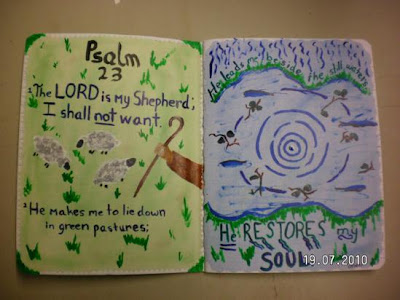 Psalm
23
¹The LORD is my Shepherd;
I shall not want.
²He makes me to lie down
in green pastures;
He leads me beside the still waters.
He RESTORES my
SOUL
19.07.2010